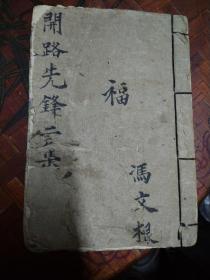 開路先鋒集
福
馮文根